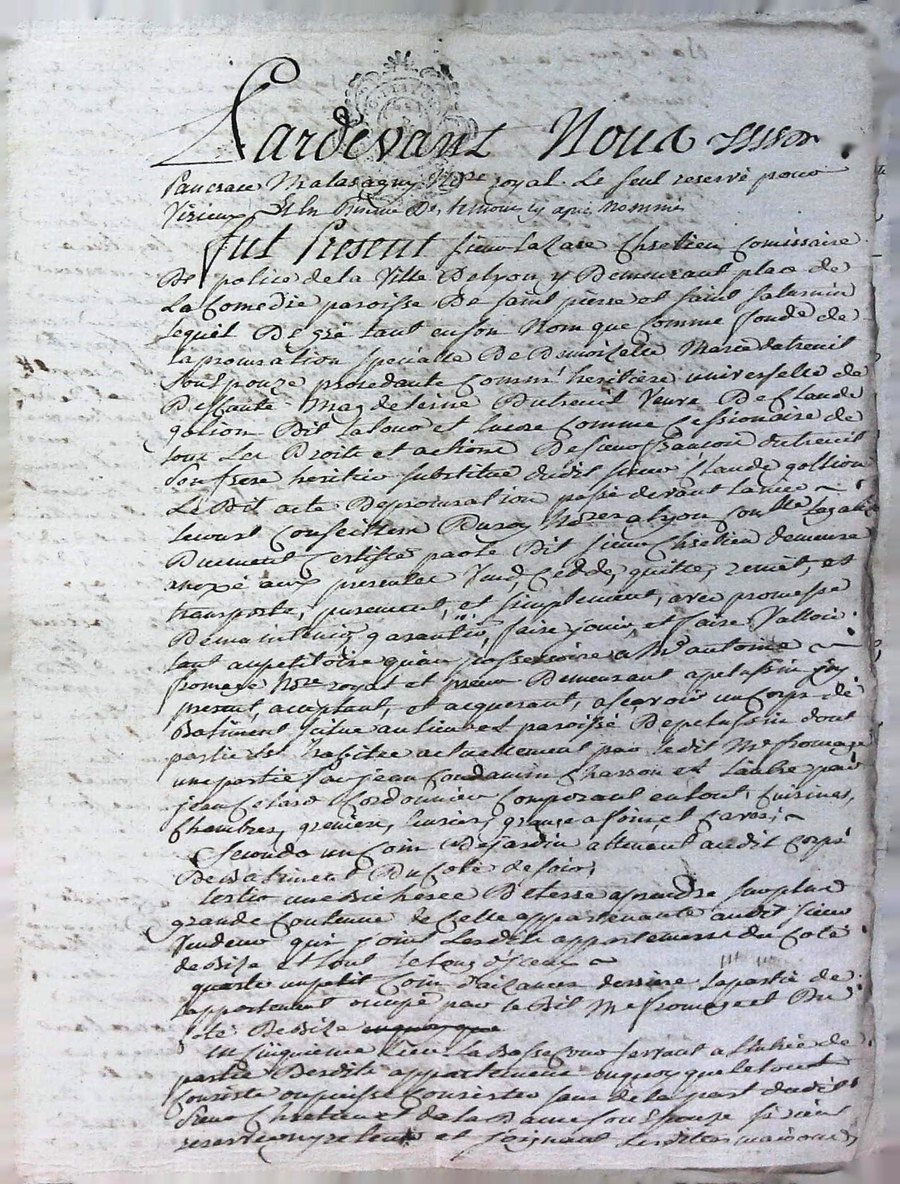 Pardevant Nous
Pancrace Malassagny No.re royal. Le seul reservé pour
Virieux Et En presence Des temoins cy apres Nommés
fut Present sieur Lazare Chretien Comissaire
De police de la Ville Delyon y Demeurant place de
La Comedie paroisse De saint pierre et saint saturnin
Lequel De gré tant enson Nom que Comme fondé de
la procuration specialle De Demoiselle Marie dutreuil
son Epouze procedante Comme heritiere universelle de
Deffunte Magdeleine Dutreuil Veuve De Claude
gollion Dit et encore Comme Cessionaire de
tous Les Droits et actions De sieur françois dutreuil
son frere heritier substitué dudit sieur Claude gollion
Le Dit acte De procuration passé devant
Conseillers Du roy No.res a lyon
Duement Certifié par le Dit sieur Chretien demeure
anexé aux presentes Vend, Cedde, quitte, remet, et
transporte, purement, et simplement, avec promesse
De maintenir garantir, faire jouir, et faire Valloir
tant au petitoire qu'au possessoire a M.e antoine
fromage No.re royal et Demeurant a pelussin icy
present, acceptant, et acquerant, a scavoir un Corps de
Batiment situé au lieu et paroisse De pelussin dont
partie est habitée actuellement par ledit M.e fromage
une partie par jean Condamin Charron et L'autre par
jean Cordonnier Composant en tout, Cuisines,
Chambres, greniers, Ecuries, grange a foin, et Caves;
Secondo un Coin De jardin attenant audit Corps
De Batiment Du Coté de soir;
tertio une Bicherée De terre a prendre sur plus
grande Contenue de Celle appartenante audit sieur
Vendeur qui joint Lesdits appartements du Coté
de Bize et tout le long d'iceux
quarto un petit Coin d'aizances derriere la partie de
L'appartement occupé par le Dit M.e fromage et Du
Coté De Bize
En Cinquieme lieu La Basse Cour servant a L'entrée de
partie Desdits appartements en quoy que le tout
Consiste ou puisse Consister sans de la part dudit
sieur Chretien et de la Dame son Epouse si rien
reserver ny retenir et joignant Lesdites maisons